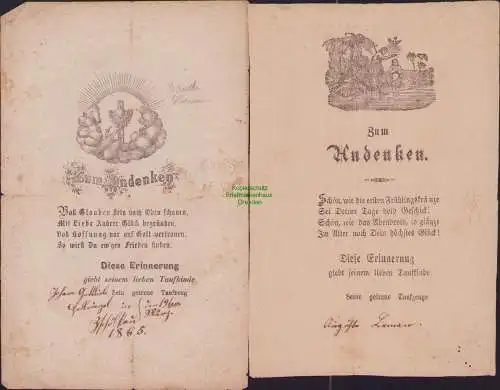 Zum Andenken
Voll Glauben stets nach Oben schauen,
Mit Liebe Andrer Glück begründen,
Voll Hoffnung nur auf Gott vertrauen,
So wirst Du ew'gen Frieden finden.
Diese Erinnerung
giebt seinem lieben Taufkinde
Dein getreue Taufzeug
1865.
Kopierschutz
Briefmarkenhaus
Dresden
Zum
Andenken.
Schön, wie die ersten Frühlingskränze
Sei Deiner Tage viel Geschick!
Schön, wie das Abendroth, so glänze
Im Alter noch Dein höchstes Glück!
Diese Erinnerung
giebt seinem lieben Taufkinde
Deine getreue Taufzeuge
Auguste